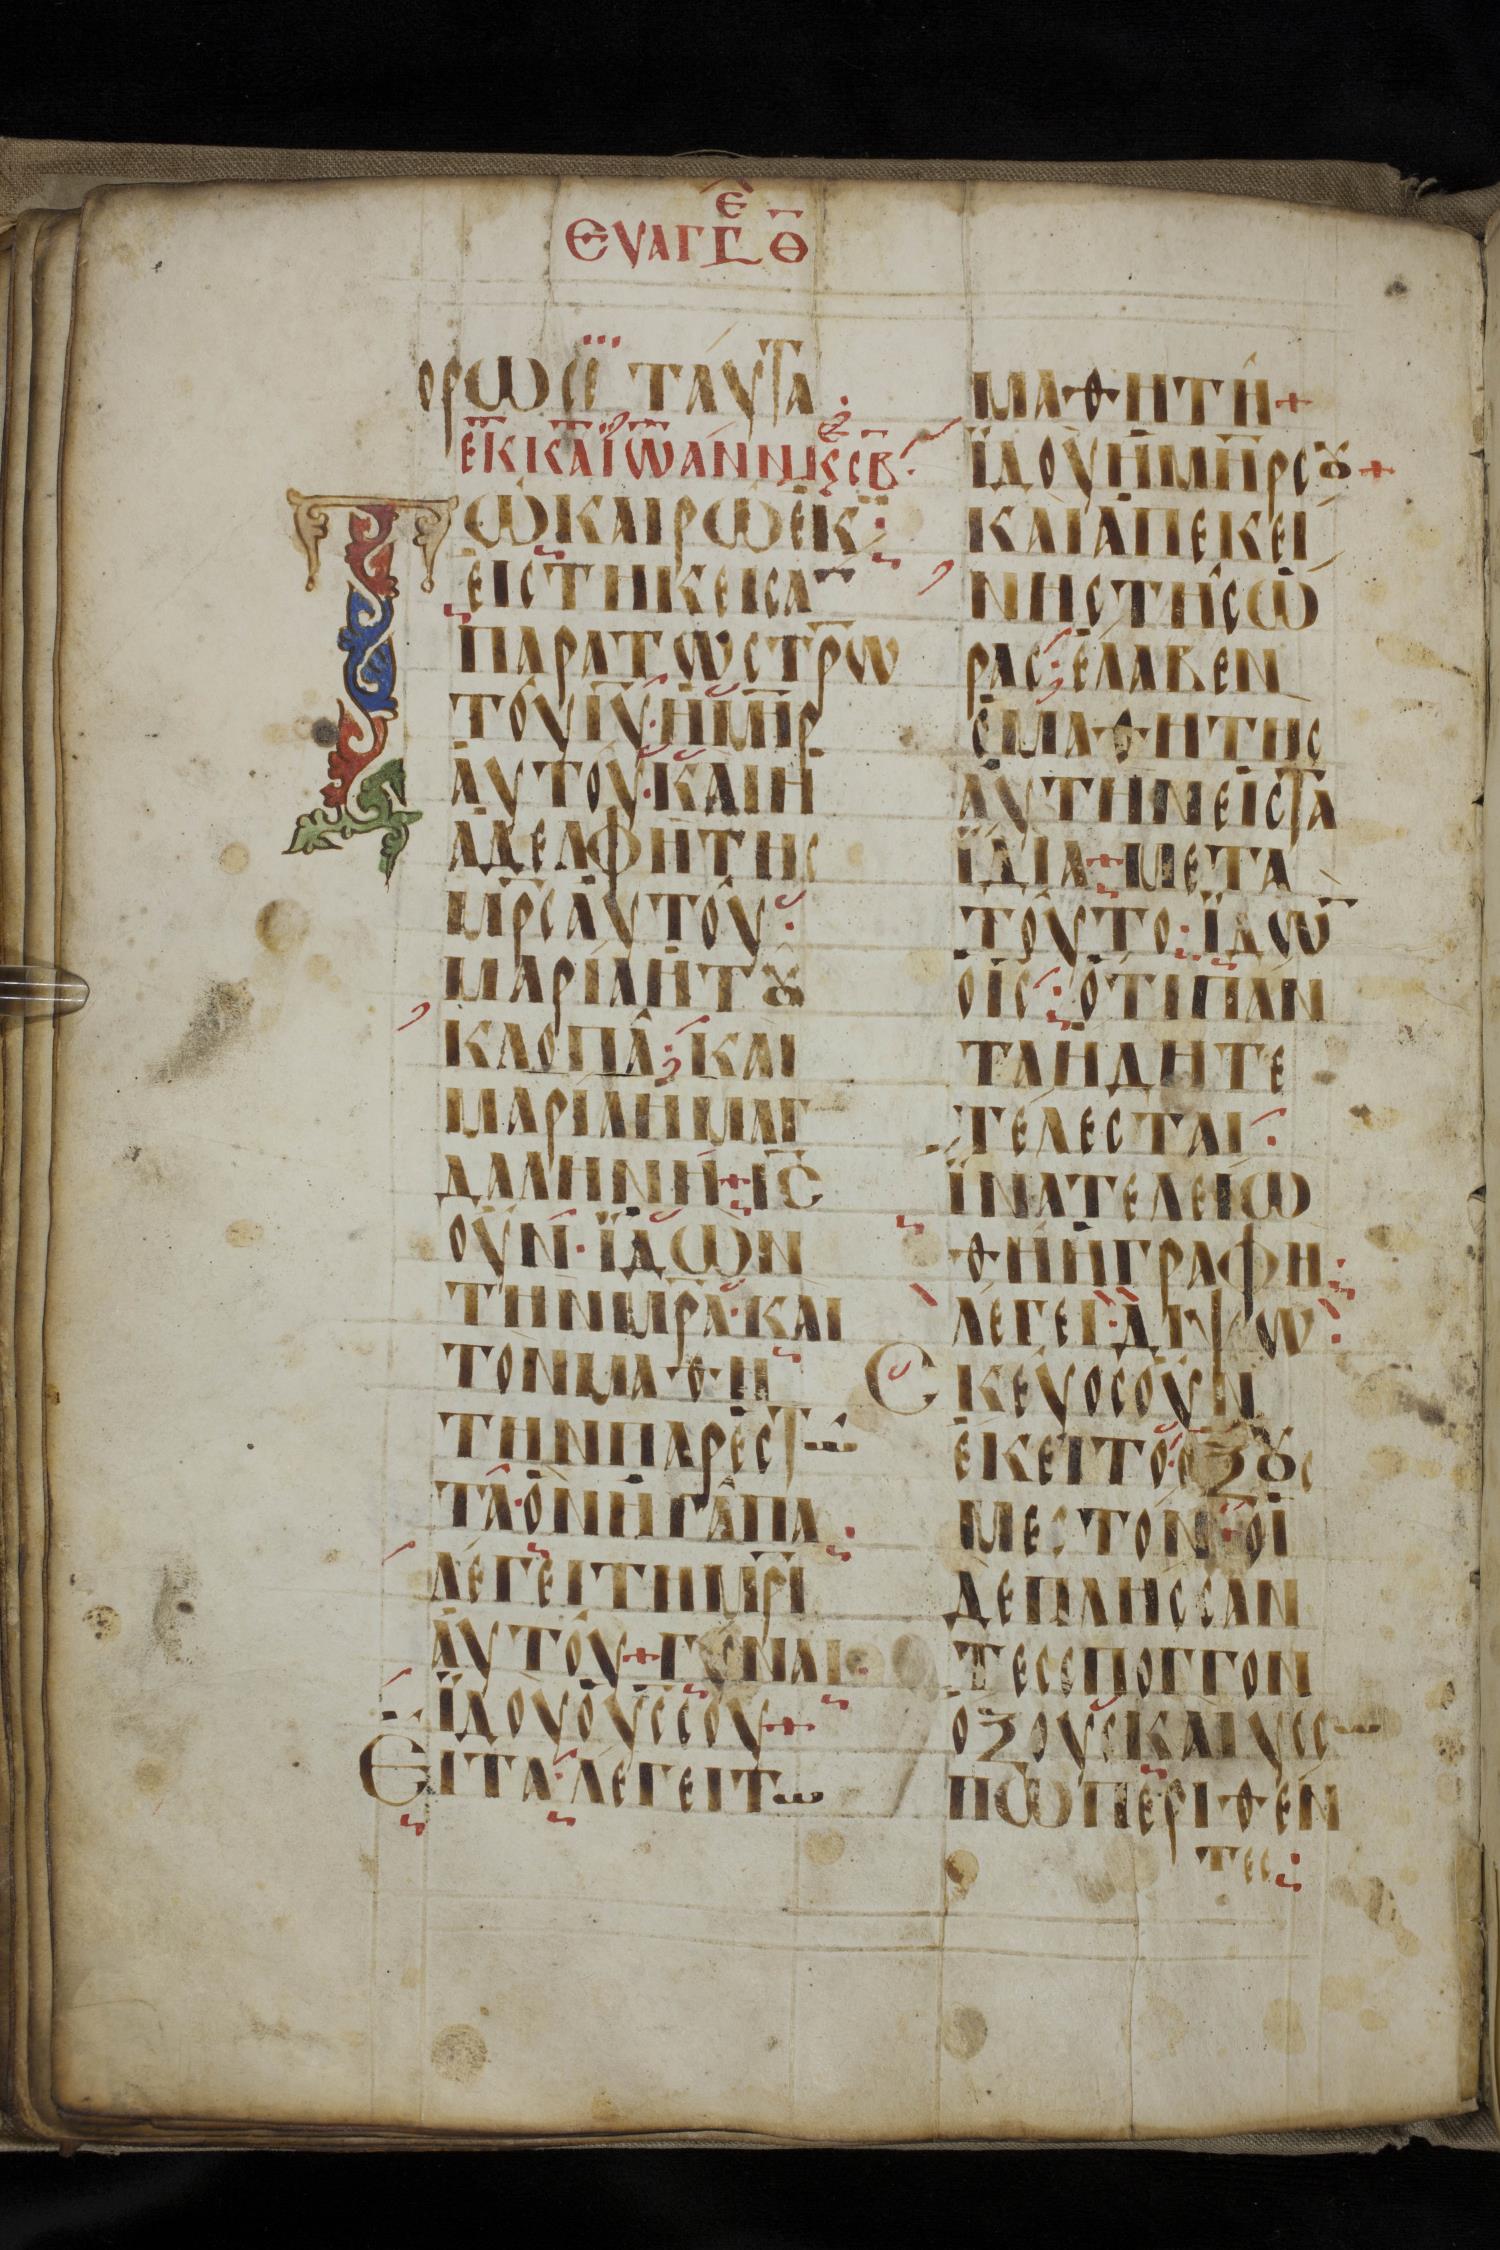 ΕΥΑΓΓΕ Θ̅
ΟΡΩΣΑΙ ΤΑΥΤΑ
ΕΚ Κ̅ ΑΙΩΑΝΝ
ΤΩ ΚΑΙΡΩ ΕΚ
ΕΙΣΤΗΚΕΙΣΑ̅
ΠΑΡΑ ΤΩ ΣΤΡ̅Ω
ΤΟΥ ΙΥ̅· Η ΜΗΡ̅
ΑΥΤΟΥ· ΚΑΙ Η
ΑΔΕΛΦΗ ΤΗΣ
ΜΡΣ̅ ΑΥΤΟΥ·
ΜΑΡΙΑ Η ΤȢ
ΚΛΟΠΑ· ΚΑΙ
ΜΑΡΙΑ Η ΜΑΓ
ΔΑΛΗΝΗ+ΙΣ̅
ΟΥΝ· ΪΔΩΝ
ΤΗΝ ΜΡΑ̅· ΚΑΙ
ΤΟΝ ΜΑΘΗ
ΤΗΝ ΠΑΡΕΣΤΩ
ΤΑ· ΟΝ ΗΓΑΠΑ·
ΛΕΓΕΙ ΤΗ ΜΡΙ̅
ΑΥΤΟΥ+ΓΥΝΑΙ·
ΪΔΟΥ Ο ΥΣ̅ ΣΟΥ+
ΕΙΤΑ· ΛΕΓΕΙ ΤΩ
ΜΑΘΗΤΗ+
ΪΔΟΥ Η ΜΗΡ̅ ΣȢ+
ΚΑΙ ΑΠ ΕΚΕΙ
ΝΗΣ ΤΗΣ Ω
ΡΑΣ· ΕΛΑΒΕΝ
Ο ΜΑΘΗΤΗΣ
ΑΥΤΗΝ ΕΙΣ ΤΑ
ΪΔΙΑ+ΜΕΤΑ
ΤΟΥΤΟ· ΪΔΩ̅
Ο ΙΣ̅· ΟΤΙ ΠΑΝ
ΤΑ ΗΔΗ ΤΕ
ΤΕΛΕΣΤΑΙ·
ΪΝΑ ΤΕΛΕΙΩ
ΘΗ Η ΓΡΑΦΗ·
ΛΕΓΕΙ· ΔΙΨΩ·
ΣΚΕΥΟΣ ΟΥΝ
ΕΚΕΙΤΟ· ΟΞȢΣ
ΜΕΣΤΟΝ· ΟΙ
ΔΕ ΠΛΗΣΣΑΝ
ΤΕΣ ΣΠΟΓΓΟΝ
ΟΞΟΥΣ ΚΑΙ ΥΣΣ
ΠΩ ΠΕΡΙΘΕΝ
ΤΕΣ·